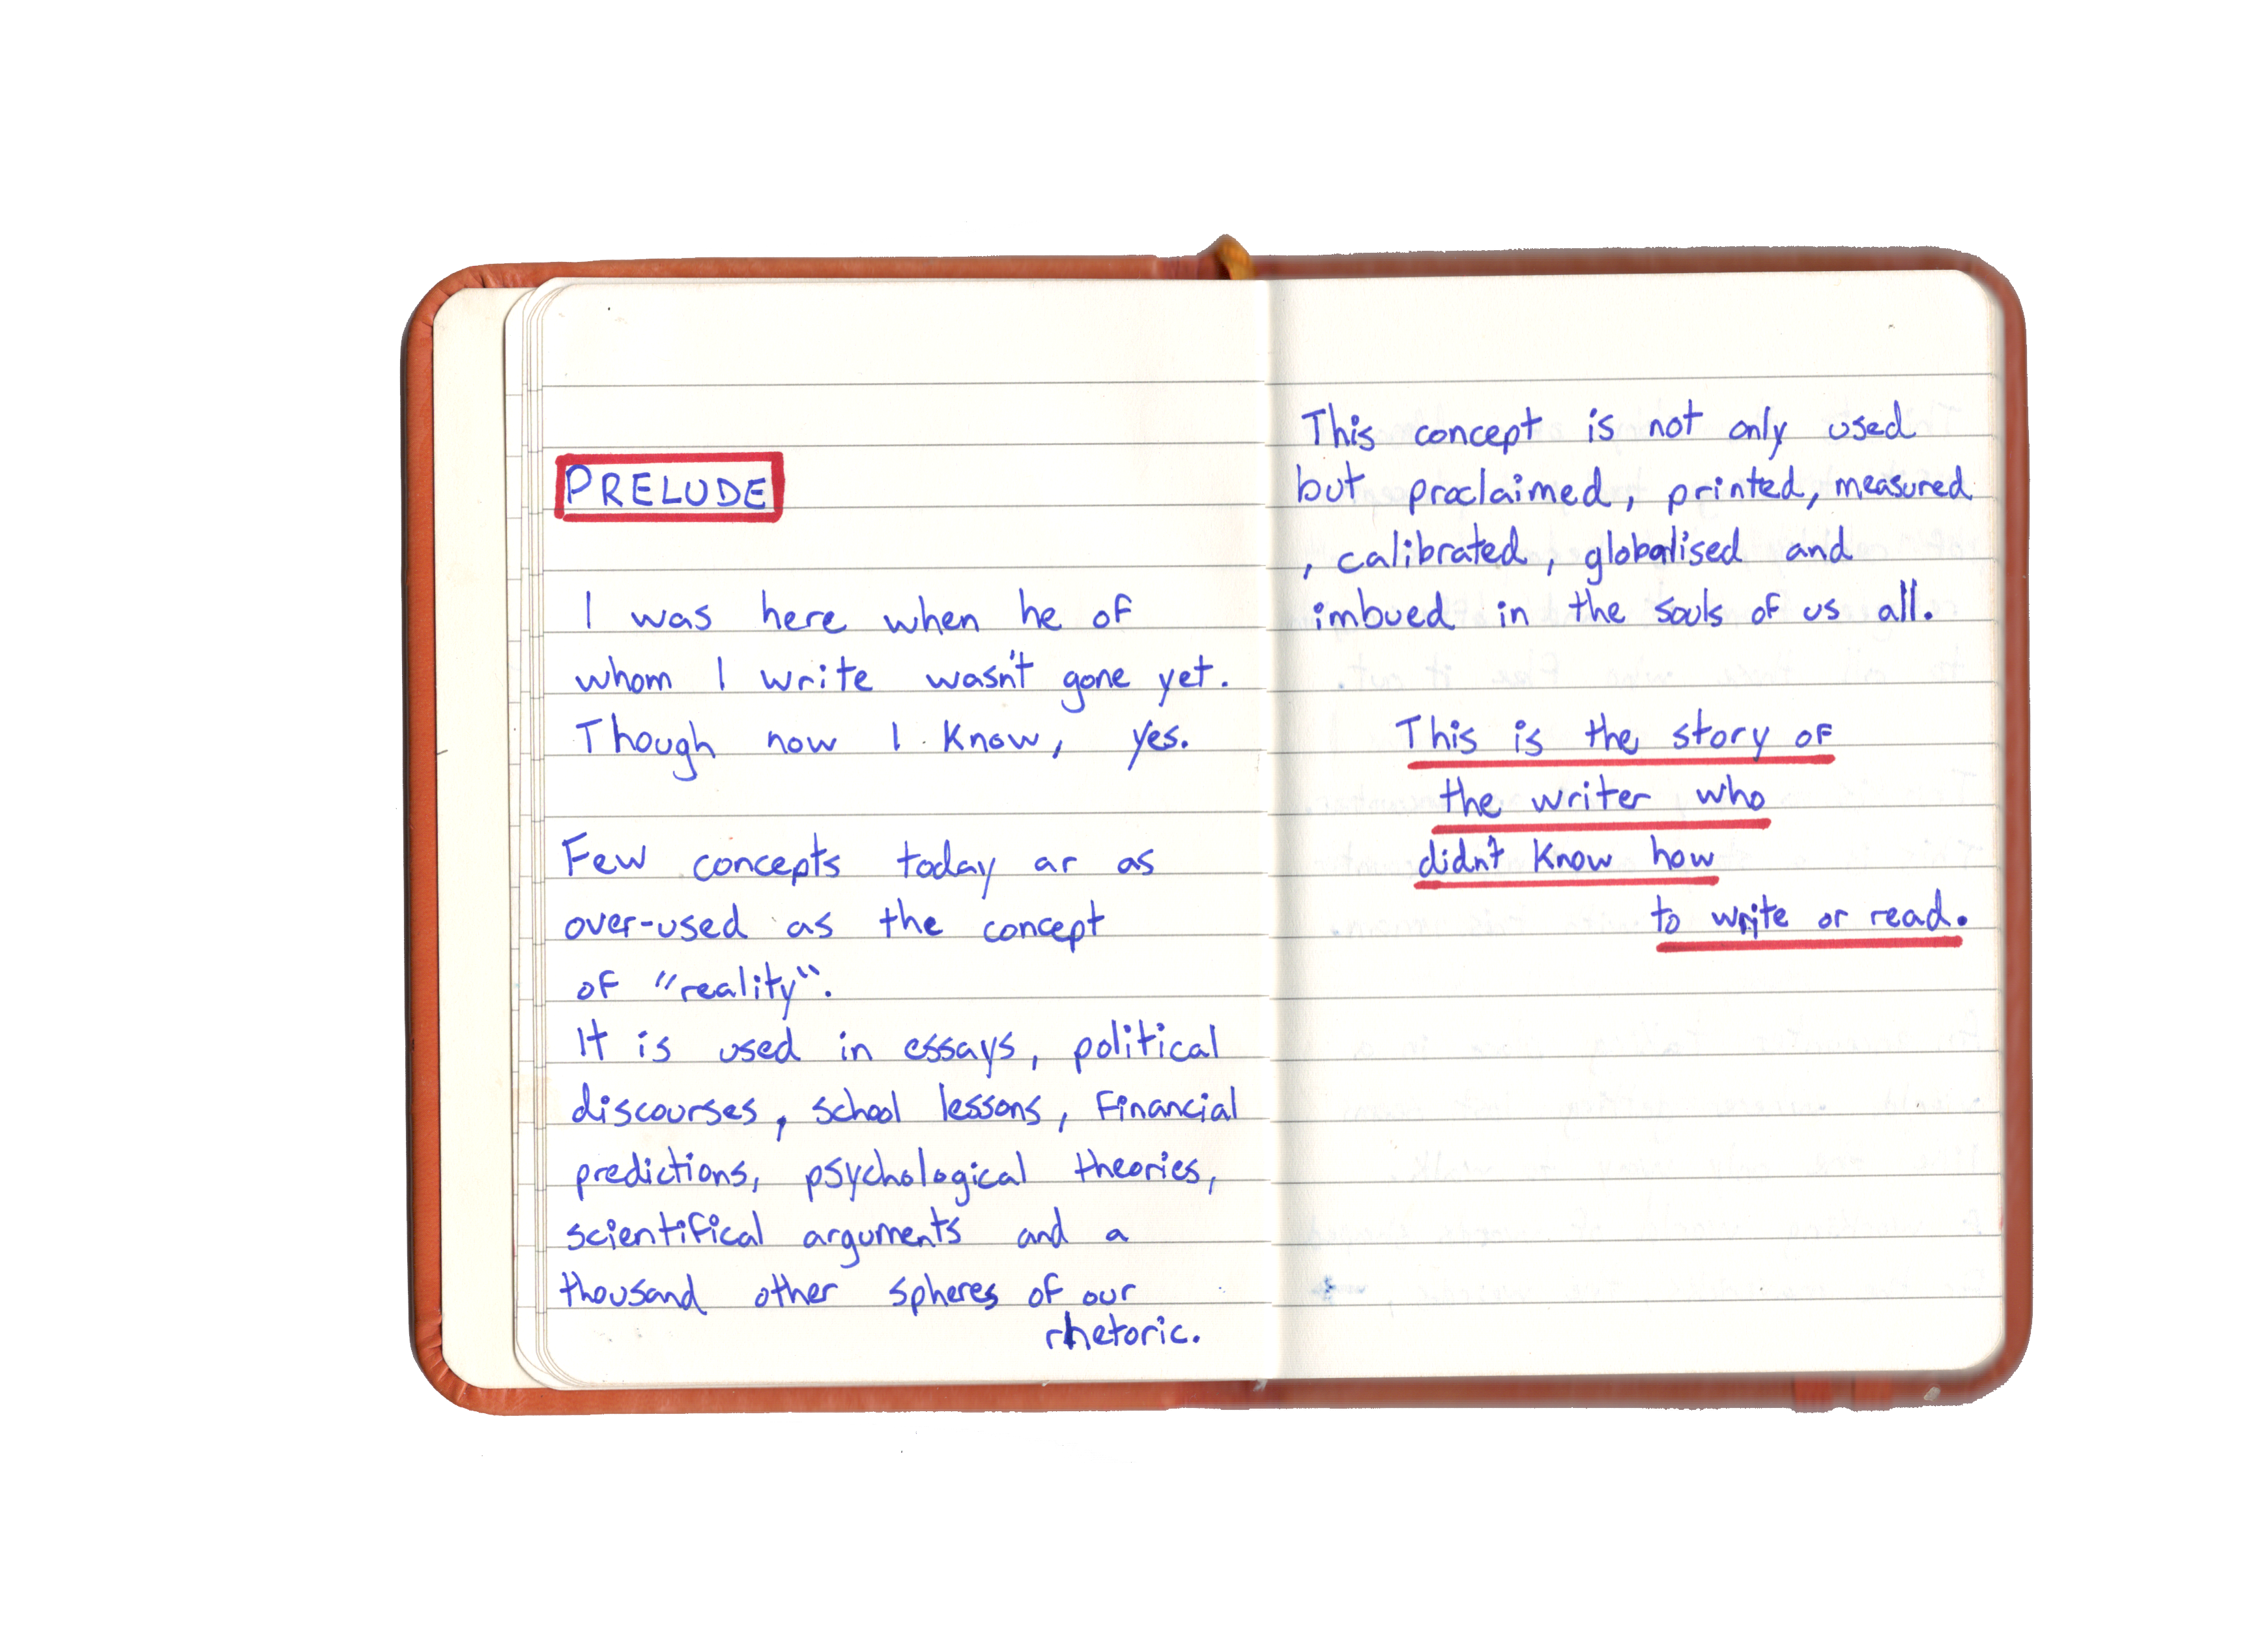 PRELUDE
I was here when he of
whom I write wasn't gone yet.
Though now I know, yes.
Few concepts today ar as
over-used as the concept
of "reality".
It is used in essays, political
discourses, school lessons, financial
predictions, psychological theories,
scientifical arguments and a
thousand other spheres of our
rhetoric.
This concept is not only used
but proclaimed, printed, measured
, calibrated, globalised and
imbued in the souls of us all.
This is the story of
the writer who
didn't know how
to write or read.